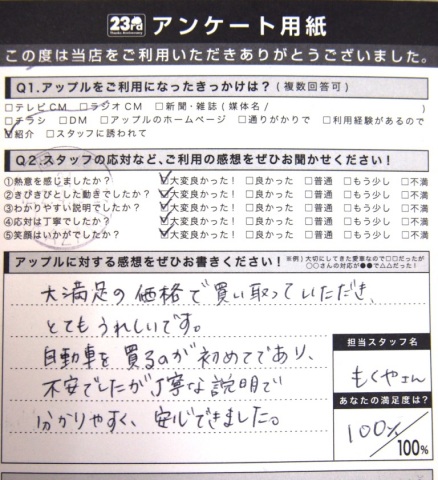 23rd アンケート用紙
Thanks Anniversary
この度は当店をご利用いただきありがとうございました。
Q1.アップルをご利用になったきっかけは?(複数回答可)
□テレビCM □ラジオCM □新聞・雑誌(媒体名/ )
□チラシ □DM □アップルのホームページ □通りがかりで □利用経験があるので
□紹介 □スタッフに誘われて
Q2.スタッフの応対など、ご利用の感想をぜひお聞かせください!
①熱意を感じましたか? □大変良かった! □良かった □普通 □もう少し □不満
②きびきびとした動きでしたか? □大変良かった! □良かった □普通 □もう少し □不満
③わかりやすい説明でしたか? □大変良かった! □良かった □普通 □もう少し □不満
④応対は丁寧でしたか? □大変良かった! □良かった □普通 □もう少し □不満
⑤笑顔はいかがでしたか? □大変良かった! □良かった □普通 □もう少し □不満
アップルに対する感想をぜひお書きください!
※例)大切にしてきた愛車なので□□だったが
○○さんの対応が●●で△△だった!
大満足の価格で買い取っていただき、
とてもうれしいです。
自動車を買るのが初めてであり、
不安でしたが丁寧な説明で
分かりやすく、安心できました。
担当スタッフ名
もくやさん
あなたの満足度は?
100%/100%